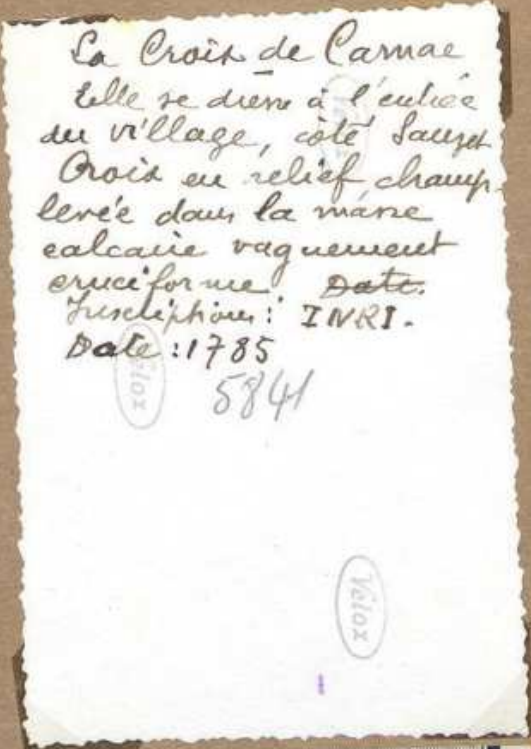 La Croix de Carnac
Elle se dresse à l'entrée
du village, côté Sauzet
Croix en relief, champ-
levée dans la masse
calcaire vaguement
cruciforme Date.
Inscriptions: INRI.
Date : 1785
5841
Velox
Velox
Velox